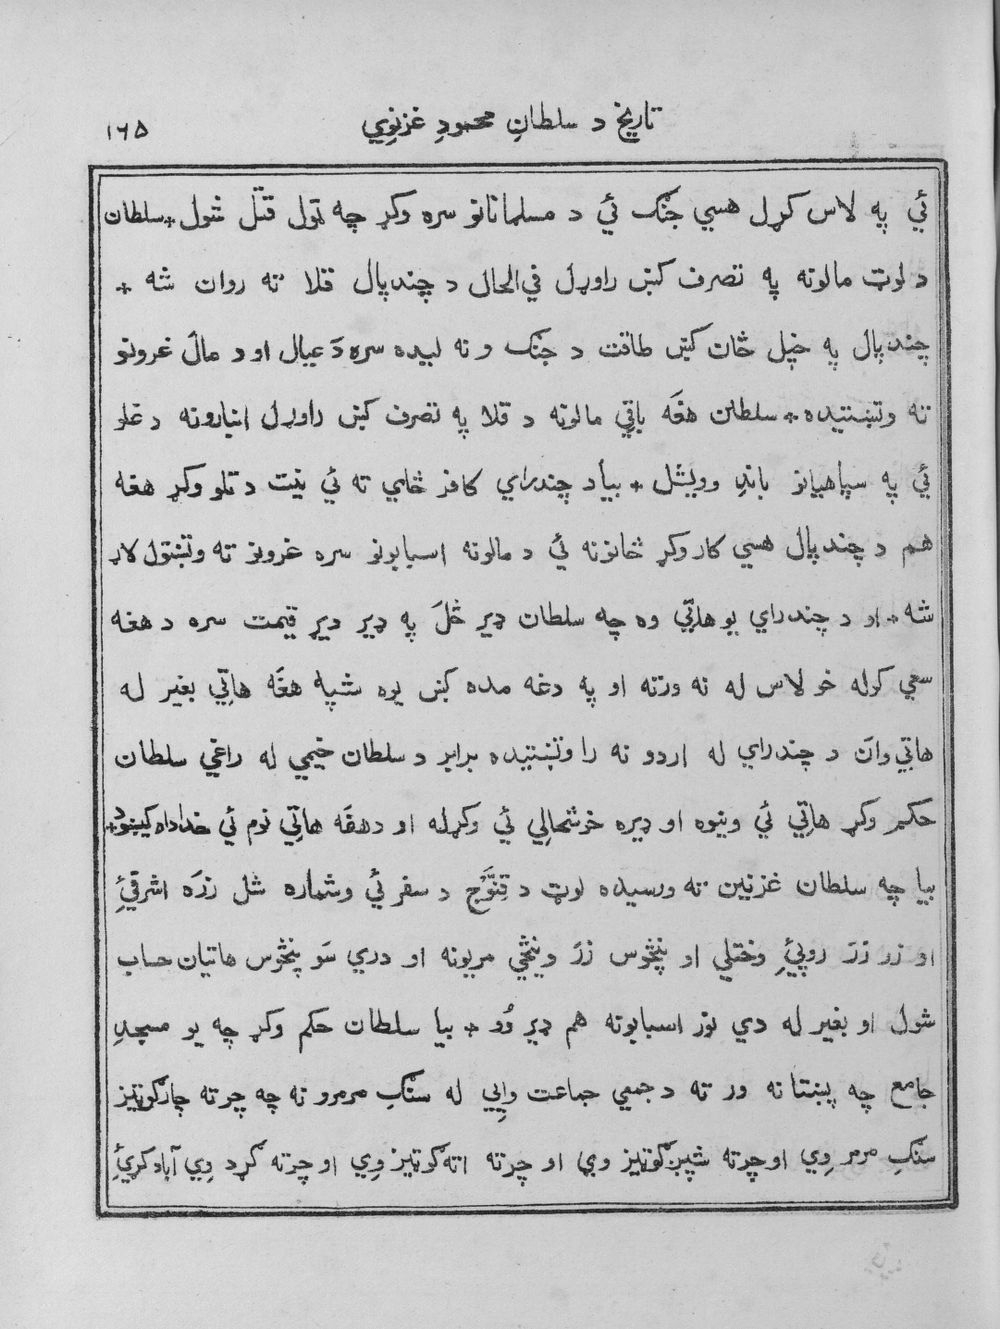 تاریخ د سلطانِ محمودِ غزنوِي ۱٦۵
ئي په لاس کړل هسي جنګ ئي د مسلمانانو سره وکړ چه ټول قتل شول + سلطان
د لوټ مالونه په تصرف کښ راوړل في الحال د چندپال قلا ته روان شه +
چندپال په خپل ځان کښ طاقت د جنګ ونه لیده سره دَ عیال او د مال غرونو
ته وتښتیده + سلطان هغَه باقي مالونه د قلا په تصرف کښ راوړل انبارونه د غلو
ئي په سپاهیانو باندِ وویشل + بیا د چندراي کافر ځاي ته ئي نیت د تلو وکړ هغه
هم د چندپال هسي کار وکړ ځانونه ئي د مالونه اسبابونو سره غرونو ته وتښتول لاړ
شه + او د چندراي یو هاتي وه چه سلطان ډیر ځلَ په ډیر ډیر قیمت سره د هغه
سعي کوله خو لاس له نه ورته او په دغه مده کښ یوه شپه هغَه هاتِي بغیر له
هاتي وان د چندراي له اردو نه را وتښتیده برابر د سلطان خیمي له راغي سلطان
حکم وکړ هاتِي ئي ونیوه او ډیره خوشحالِي ئي وکړله او د هغَه هاتِي نوم ئي خداداد کیښود +
بیا چه سلطان غزنین ته ورسیده لوټ د قِنَّوْج د سفر ئي وشماره شل زرَه اشرفئِ
او زر زرَ روپئِ وختلي او پنځوس زرَ وینځي مریونه او دري سَو پنځوس هاتیان حساب
شول او بغیر له دي نور اسبابونه هم ډیر وُو + بیا سلطان حکم وکړ چه یو مسجدِ
جامع چه پښتانه ور ته د جمعي جماعت وایِي له سنګِ مرمرو نه چه چرته چارګوټیز
سنګِ مرمر وِي او چرته شپږ ګوټیز وي او چرته اته ګوټیز وِي او چرته ګرد وِي آباد کړئِ